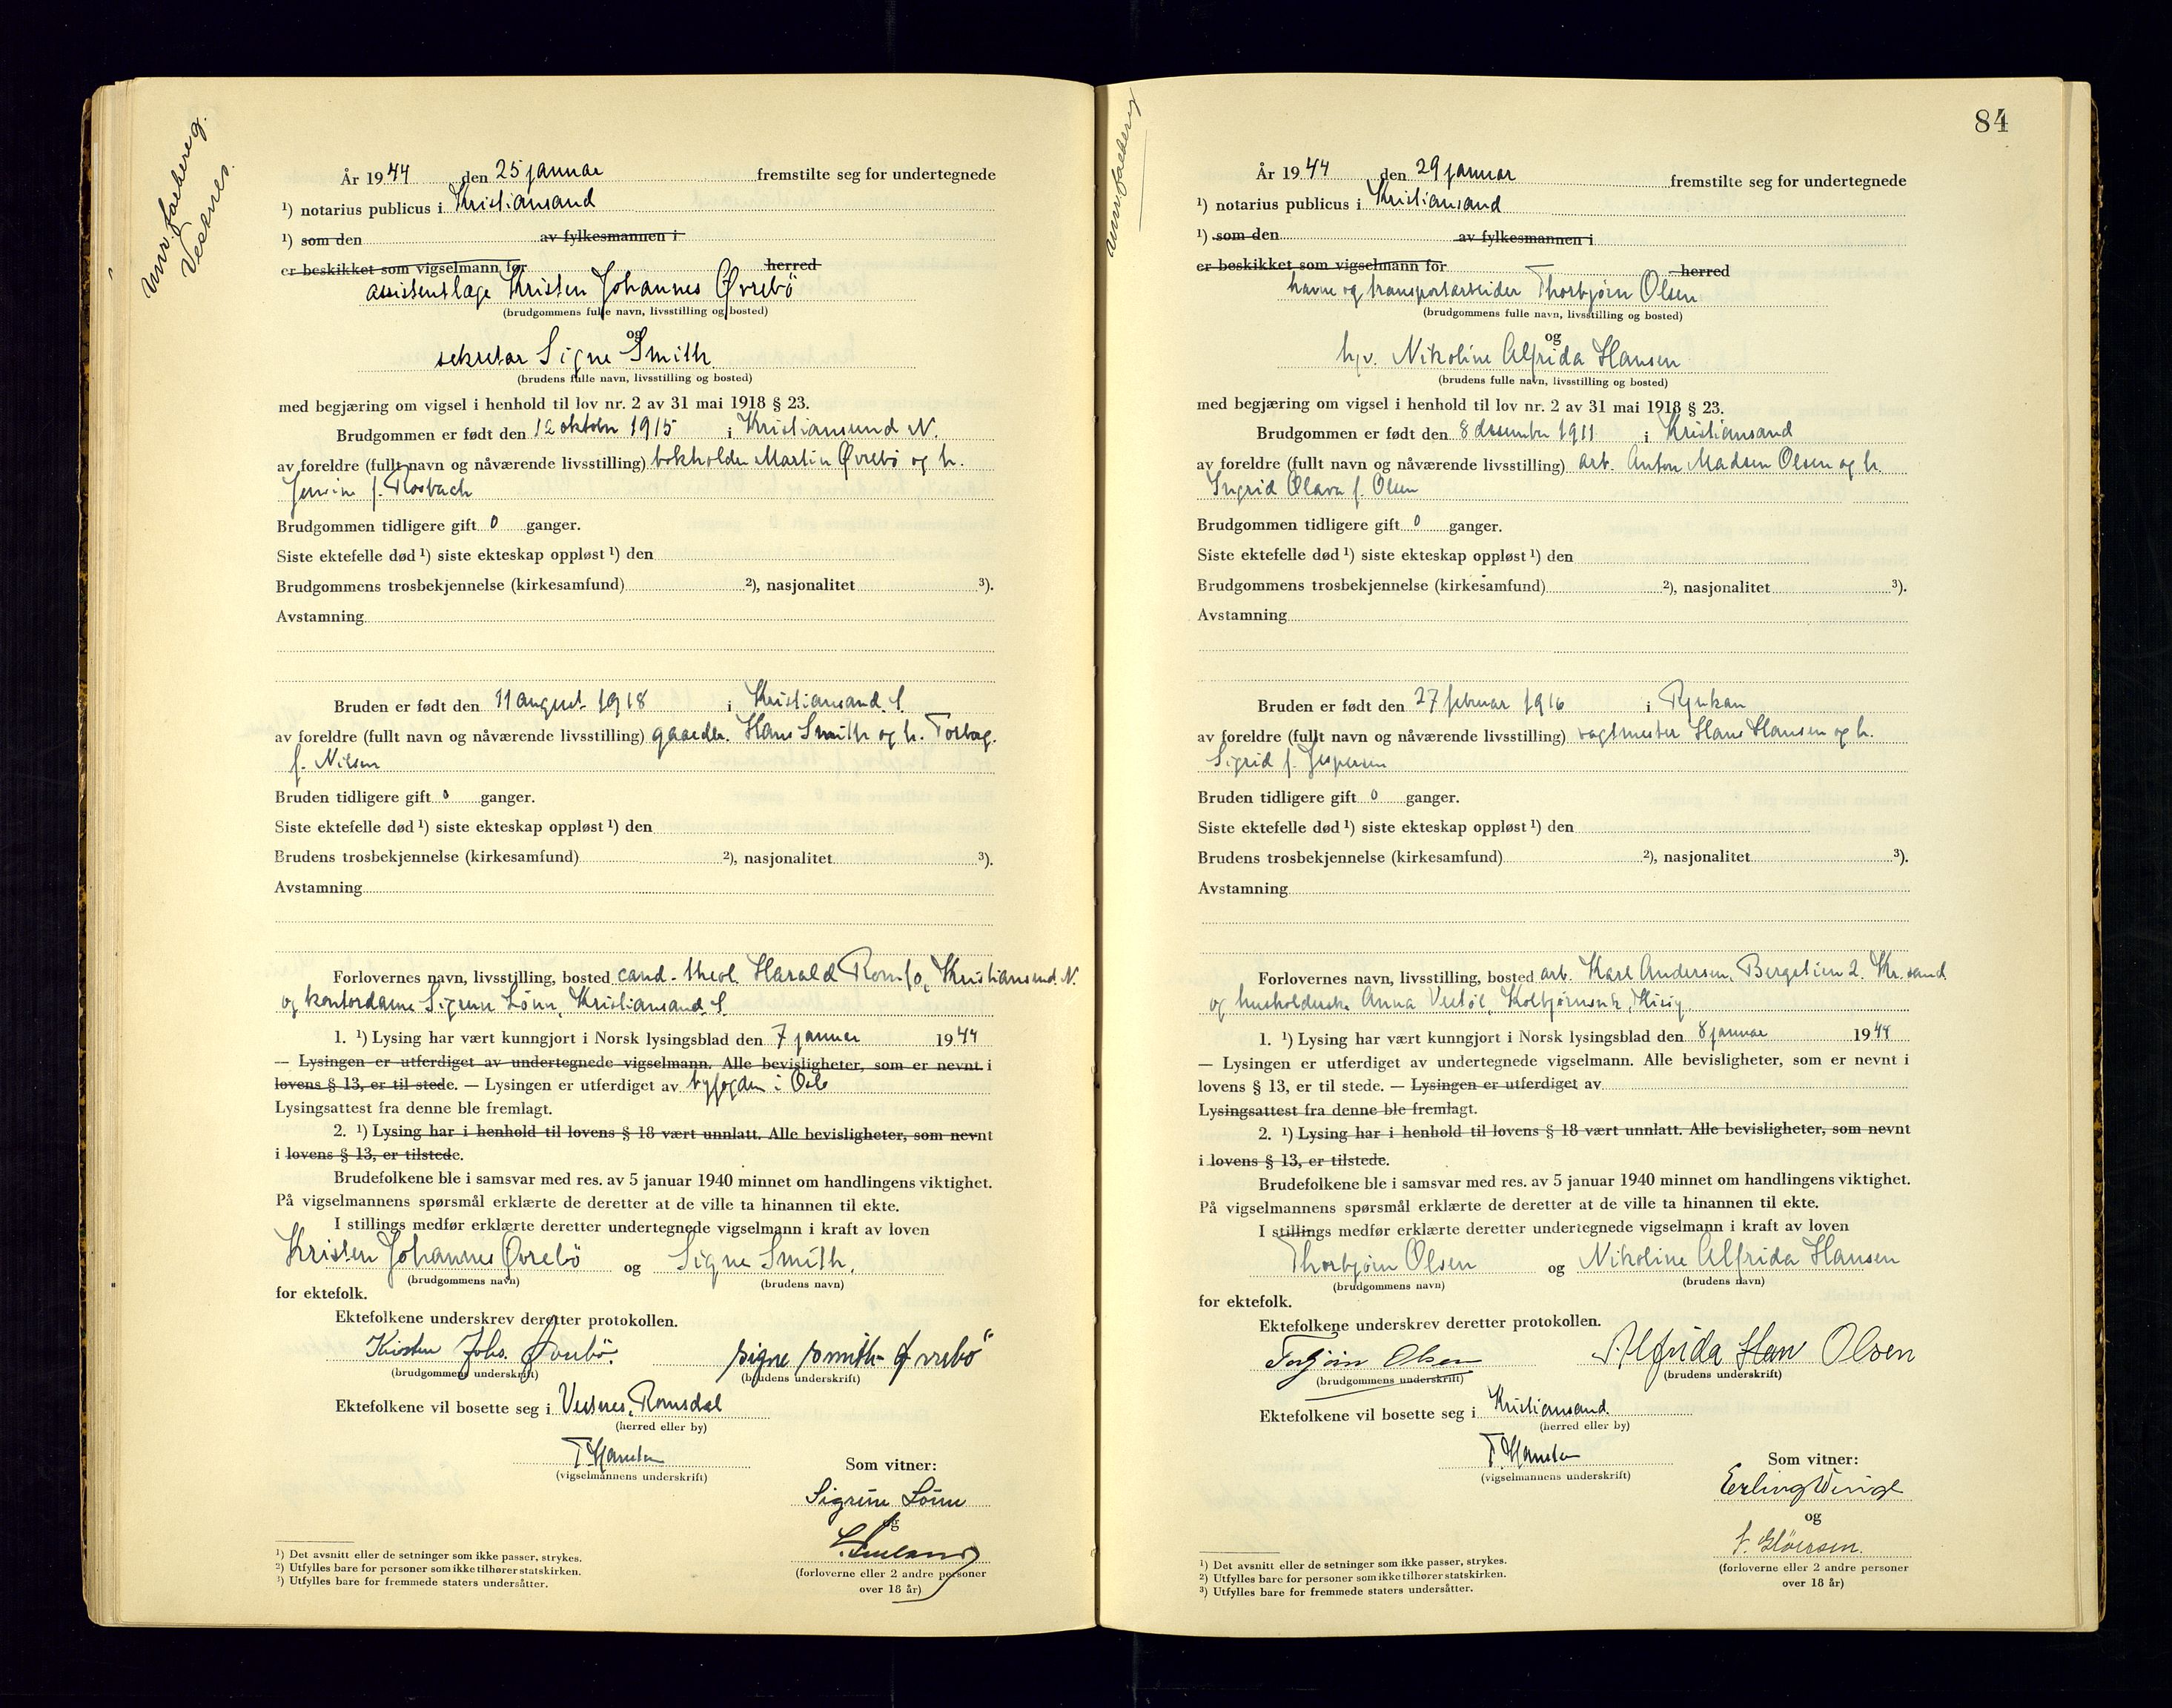 Vestnes.
År 1944 den 25 januar fremstilte seg for undertegnede
¹) notarius publicus i Kristiansand
¹) som den av fylkesmannen i
er beskikket som vigselmann for herred
assistentlæge Kristen Johannes Øvrebö
(brudgommens fulle navn, livsstilling og bosted)
og
sekretær Signe Smith
(brudens fulle navn, livsstilling og bosted)
med begjæring om vigsel i henhold til lov nr. 2 av 31 mai 1918 § 23.
Brudgommen er født den 12 oktober 1915 i Kristiansund N.
av foreldre (fullt navn og nåværende livsstilling) bokholder Martin Øvrebö og h.
f. Rosbach
Brudgommen tidligere gift 0 ganger.
Siste ektefelle død ¹) siste ekteskap oppløst ¹) den
Brudgommens trosbekjennelse (kirkesamfund) ²), nasjonalitet ³).
Avstamning
Bruden er født den 11 august 1918 i Kristiansand. S.
av foreldre (fullt navn og nåværende livsstilling) gaardbr. Hans Smith og h. Torbøg.
f. Nilsen
Bruden tidligere gift 0 ganger.
Siste ektefelle død ¹) siste ekteskap oppløst ¹) den
Brudens trosbekjennelse (kirkesamfund) ²), nasjonalitet ³).
Avstamning
Forlovernes navn, livsstilling, bosted cand. theol. Harald Romfo, Kristiansund. N.
og kontordame Sigrun Lönn, Kristiansand. S
1. ¹) Lysing har vært kunngjort i Norsk lysingsblad den 7 januar 1944
— Lysingen er utferdiget av undertegnede vigselmann. Alle bevisligheter, som er nevnt i
lovens § 13, er til stede. — Lysingen er utferdiget av byfogden i Oslo
Lysingsattest fra denne ble fremlagt.
2. ¹) Lysing har i henhold til lovens § 18 vært unnlatt. Alle bevisligheter, som nevnt
i lovens § 13, er tilstede.
Brudefolkene ble i samsvar med res. av 5 januar 1940 minnet om handlingens viktighet.
På vigselmannens spørsmål erklærte de deretter at de ville ta hinannen til ekte.
I stillings medfør erklærte deretter undertegnede vigselmann i kraft av loven
Kristen Johannes Øvrebö og Signe Smith.
(brudgommens navn) (brudens navn)
for ektefolk.
Ektefolkene underskrev deretter protokollen.
Kristen Johs. Øvrebö. Signe Smith-Øvrebö
(brudgommens underskrift) (brudens underskrift)
Ektefolkene vil bosette seg i Vestnes, Romsdal
(herred eller by)
(vigselmannens underskrift)
Som vitner:
Sigrun Lönn
og
(forloverne eller 2 andre personer
over 18 år)
¹) Det avsnitt eller de setninger som ikke passer, strykes.
²) Utfylles bare for personer som ikke tilhører statskirken.
³) Utfylles bare for fremmede staters undersåtter.
84
År 1944 den 29 januar fremstilte seg for undertegnede
¹) notarius publicus i Kristiansand
¹) som den av fylkesmannen i
er beskikket som vigselmann for herred
havne og transportarbeider Thorbjørn Olsen
(brudgommens fulle navn, livsstilling og bosted)
og
hjv. Nikoline Alfrida Hansen
(brudens fulle navn, livsstilling og bosted)
med begjæring om vigsel i henhold til lov nr. 2 av 31 mai 1918 § 23.
Brudgommen er født den 8 desember 1911 i Kristiansand
av foreldre (fullt navn og nåværende livsstilling) arb. Anton Madsen Olsen og h.
Ingrid Olava f. Olsen
Brudgommen tidligere gift 0 ganger.
Siste ektefelle død ¹) siste ekteskap oppløst ¹) den
Brudgommens trosbekjennelse (kirkesamfund) ²), nasjonalitet ³).
Avstamning
Bruden er født den 27 februar 1916 i Rjukan
av foreldre (fullt navn og nåværende livsstilling) vagtmester Hans Hansen og h.
Sigrid f. Jespersen
Bruden tidligere gift 0 ganger.
Siste ektefelle død ¹) siste ekteskap oppløst ¹) den
Brudens trosbekjennelse (kirkesamfund) ²), nasjonalitet ³).
Avstamning
Forlovernes navn, livsstilling, bosted arb. Karl Andersen, Bergstien 2. Kr.sand
og husholderske Anna Vestöl,
1. ¹) Lysing har vært kunngjort i Norsk lysingsblad den 8 januar 1944
— Lysingen er utferdiget av undertegnede vigselmann. Alle bevisligheter, som er nevnt i
lovens § 13, er til stede. — Lysingen er utferdiget av
Lysingsattest fra denne ble fremlagt.
2. ¹) Lysing har i henhold til lovens § 18 vært unnlatt. Alle bevisligheter, som nevnt
i lovens § 13, er tilstede.
Brudefolkene ble i samsvar med res. av 5 januar 1940 minnet om handlingens viktighet.
På vigselmannens spørsmål erklærte de deretter at de ville ta hinannen til ekte.
I stillings medfør erklærte deretter undertegnede vigselmann i kraft av loven
Thorbjørn Olsen og Nikoline Alfrida Hansen
(brudgommens navn) (brudens navn)
for ektefolk.
Ektefolkene underskrev deretter protokollen.
Torbjørn Olsen Alfrida Han Olsen
(brudgommens underskrift) (brudens underskrift)
Ektefolkene vil bosette seg i Kristiansand.
(herred eller by)
(vigselmannens underskrift)
Som vitner:
Erling Winge
og
(forloverne eller 2 andre personer
over 18 år)
¹) Det avsnitt eller de setninger som ikke passer, strykes.
²) Utfylles bare for personer som ikke tilhører statskirken.
³) Utfylles bare for fremmede staters undersåtter.